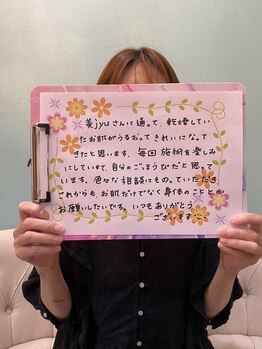 美jyuさんに通って、乾燥してい
たお肌がうるおってきれいになって
きたと思います。毎回施術を楽しみ
にしていまて、自分のごほうびだと思って
います。色々な相談にものっていただき
これからもお肌だけでなく身体のことも
お願いしたいです。いつもありがとう
ございます♡